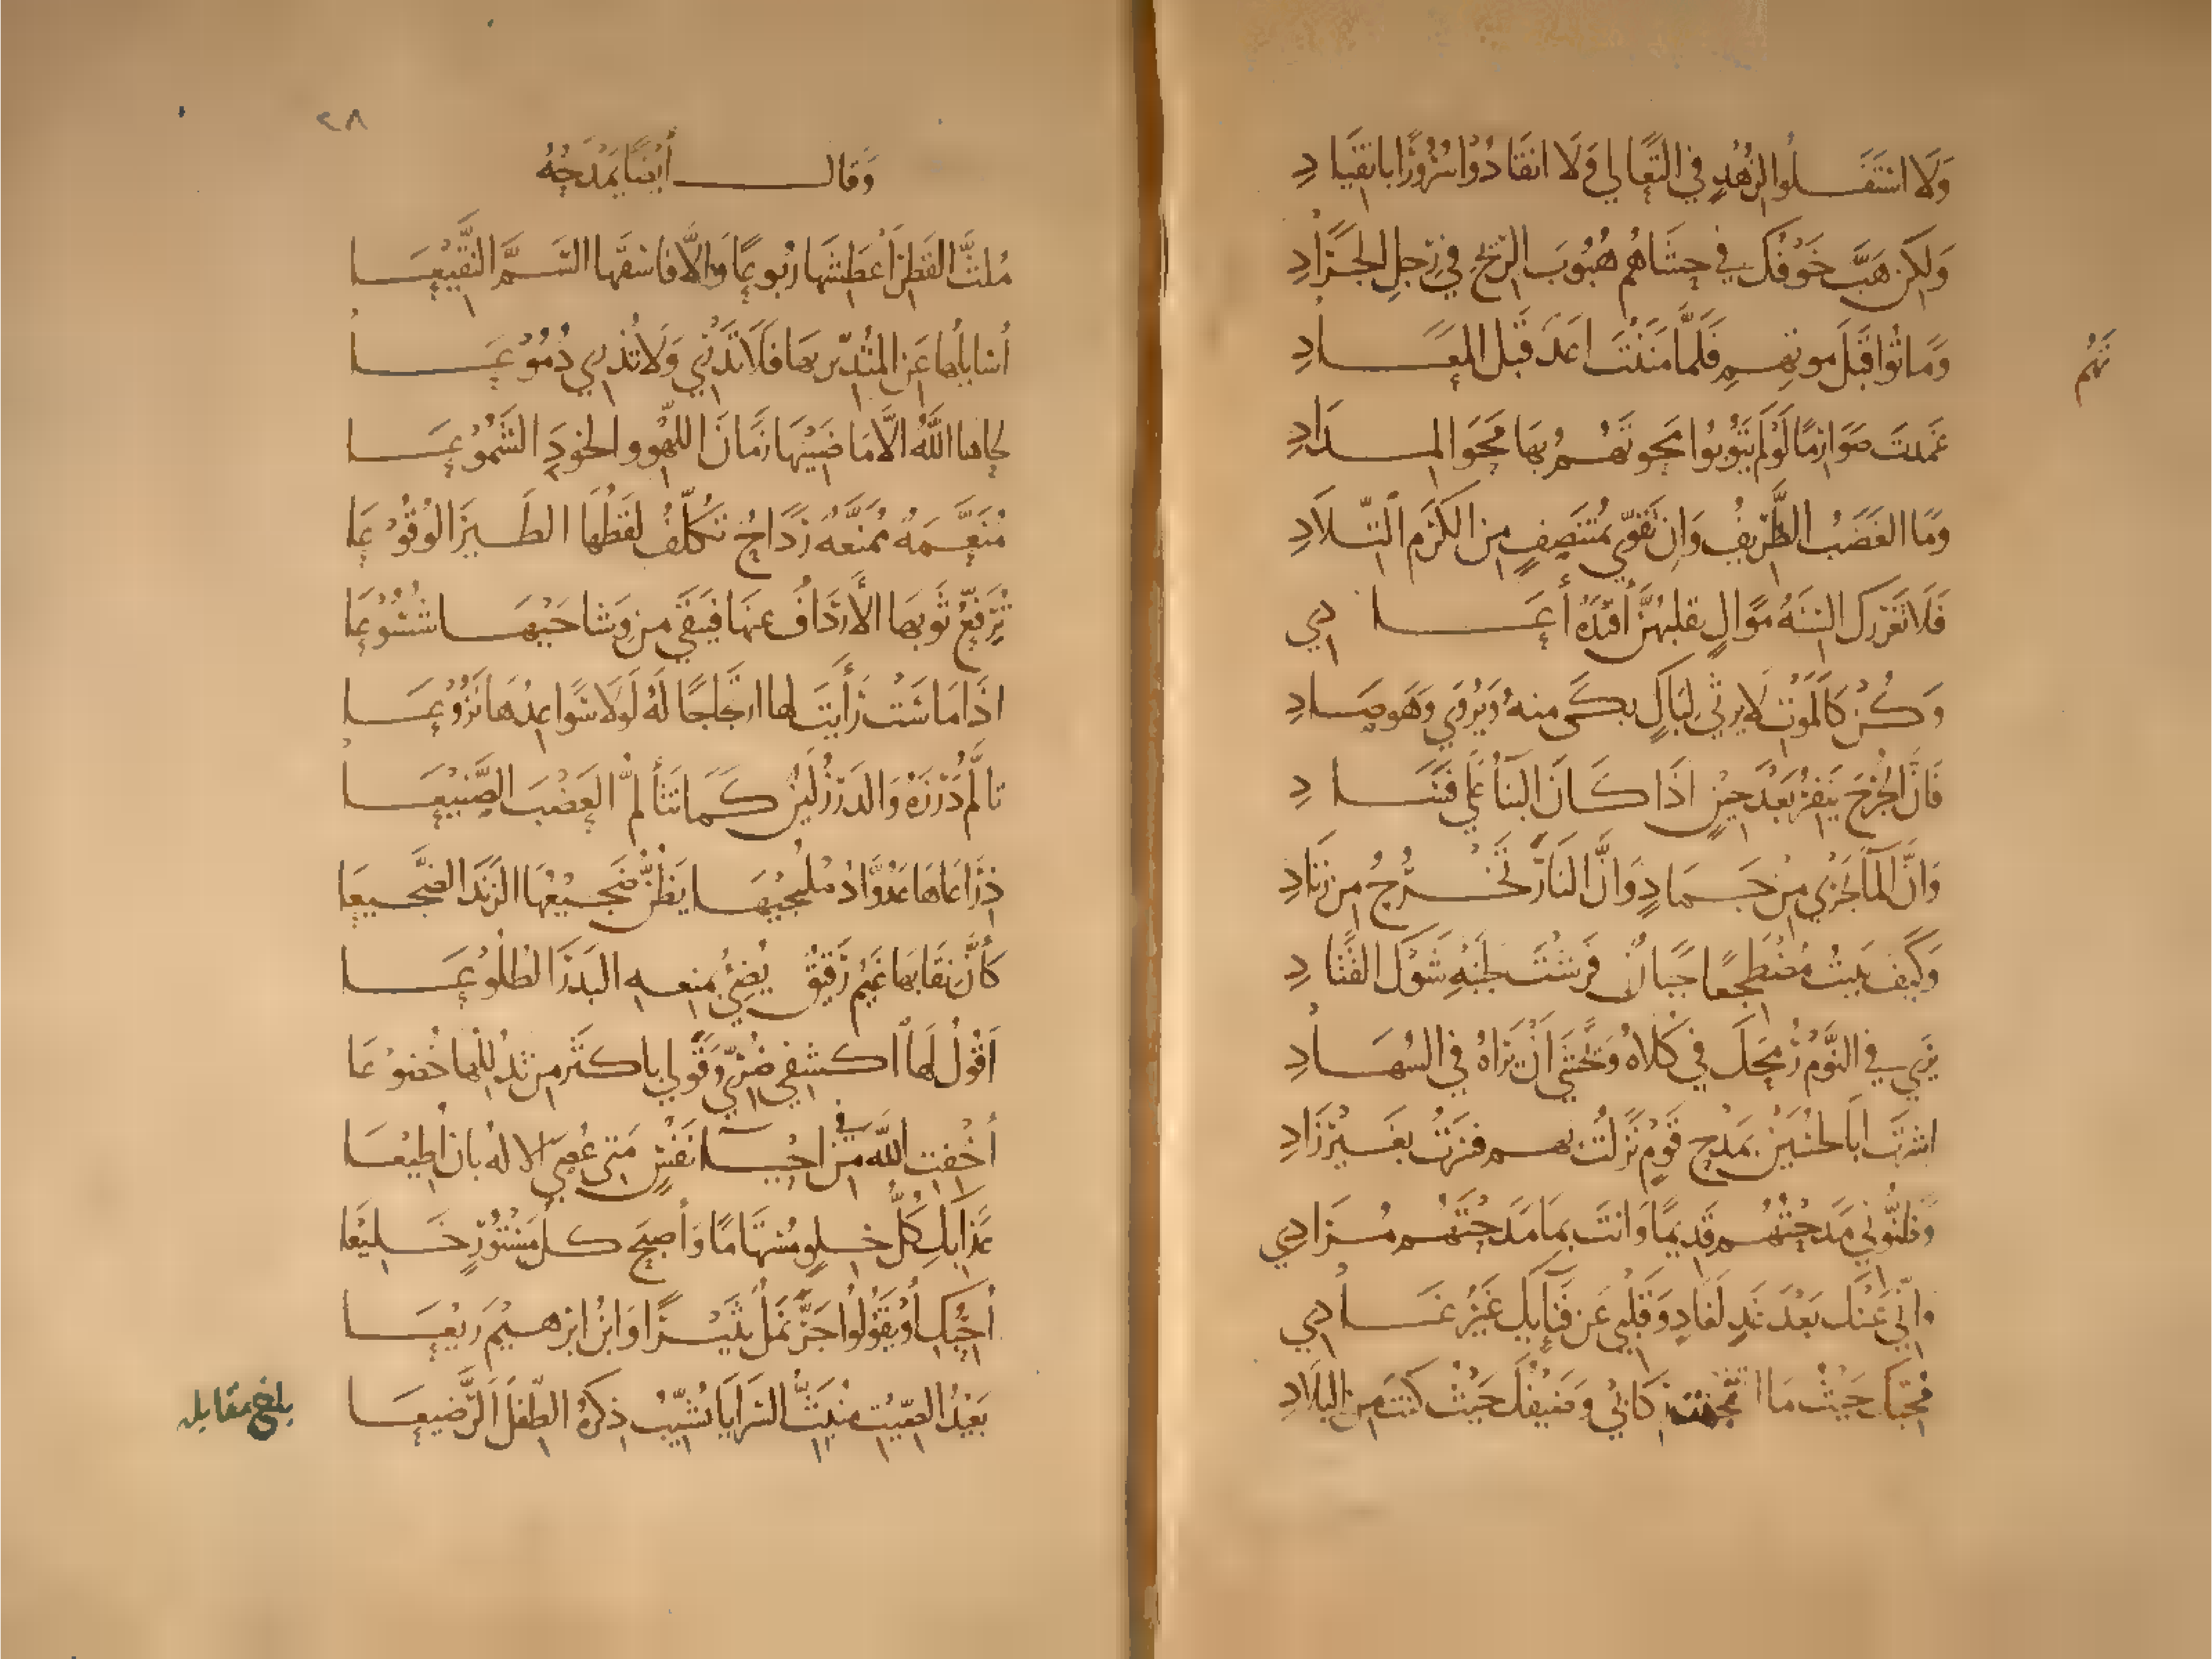 وَلَا اسْتَثْقَلُوا الزُّهْدِ في التَّعَالي وَلَا انقَادُوا سُرُورًا بانقِيَادِ
وَلكِن هَبَّ خَوْفُكَ في حَشَاهُم هُبُوبَ الرّيحِ في رِجلِ الجَرَادِ
وَمَاتُوا قَبْلَ موتِهِم فَلَمَّا مَنَنْتَ اعَدتَّهُم قَبْلَ المعَادِ
غَمدتَ صَوَارمًا لَوْ لَم يَتُوبُوا مَحَوتَهُم بهَا مَحْوَ المِدَادِ
وَمَا الغَضَبُ الطَّرِيفُ وَاِن تَقَوّي بمُنتَصِفٍ مِنَ الكَرَمِ التِّلَادِ
فَلَا تَغْرُركَ السِنَةُ مَوَالٍ تقلّبُهُنَّ أفئِدَةٌ أعَادِي
وَكُنْ كَالمَوْتِ لَا يرثي لبَاكٍ بكَى منهُ وَيَرْوَي وَهو صَادِ
فَانَّ الجُرْحَ يَنفِرُ بَعْدَ حِيْنٍ اذَا كَانَ البنَاءُ عَلَي فَسَادِ
وَانَّ المَاءَ يَجْرِي مِنْ جَمَادٍ وَانَّ النَارَ تَخْرُجُ مِن زنَادِ
وَكَيفَ يَبيتُ مُضْطَجِعًا جَبَانٌ فَرَشْتَ لجَنْبِهِ شَوْكَ القَتَادِ
يَرَي في النَّوْمِ رُمحَكَ في كُلَاهُ وَيَخْشَي أنْ يَرَاهُ في السُهَادِ
اشرتَ ابَا الحُسَيْنِ بمَدْحِ قَوْمٍ نَزَلْتُ بهم فسِرْتُ بغَيْرِ زَادِ
وَظَنُّوني مَدَحْتُهُم قَدِيمًا وَانتَ بمَا مَدَحْتُهُم مُرَادِي
وَانّي عَنْكَ بَعْدَ غَدٍ لَغادٍ وَقَلْبِي عَن فَنَائِكَ غَيْرُ غَادِي
مُحِبُّكَ حَيْثُ مَا اتّجَهَتْ رِكَابي وَضَيْفُكَ حَيْثُ كنتَ مِنَ البِلَادِ
٢٨
وَقَالَ أَيْضًا يَمْدَحُهُ
مُلثَّ القَطْرِ أَعْطِشْهَا رُبُوعًا وَالَّا فَاسْقِهَا السَّمَّ النَّقِيعَا
أسَائِلُهَا عَنِ المُتَدَيّرِيهَا فَلَا تَدْرِي وَلَا تُذْرِي دُمُوْعَا
لحَاهَا اللَّهُ الَّا مَاضِيَيْهَا زَمَانَ اللَّهْوِ والخَوْدِ الشَّمُوْعَا
مُنَعَّمَةٌ مُمَنَّعَةٌ رَدَاحٌ تُكَلِّفُ لَفظُهَا الطَّيرَ الوُقُوْعَا
تُرَفِّعُ ثَوْبهَا الأَرْدَافُ عنهَا فَيَبْقَى مِن وِشَاحَيْهَا شَسُوْعَا
اذَا مَاسَتْ رَأَيْتَ لهَا ارتجَاجًا لَهُ لَوْلَا سَوَاعِدُهَا نَزُوْعَا
تَأَلَّمُ دَرْزَهُ وَالدَرْزُ لَيْنٌ كَمَا تَتَأَلَّمُ العَضْبَ الصَّنِيعَا
ذِرَاعَاهَا عَدُوَّا دُمْلُجَيْهَا يَظُنُّ ضَجِيعُهَا الزَنْدَ الضَّجِيعَا
كَأَنَّ نقَابهَا غَيْمٌ رَقِيْقٌ يُضِيءُ بمَنعِهِ البَدْرَ الطُلُوْعَا
أقُولُ لَهَا اكشِفِي ضُرّي وَقَوْلي باكثَرَ مِن تَدَلُّلِهَا خُضُوْعَا
أَخِفْتِ اللَّهَ في احْيَا نَفْسٍ مَتَي عُصِيَ الالَهُ بِأَن أُطِيْعَا
غَدَا بِكِ كُلُّ خِلوٍ مُسْتَهَامًا وَأَصبَحَ كلُّ مَسْتُوْرٍ خَلِيْعَا
أُحِبُّكِ أوْ يَقُولُوا جَرَّ نَمْلٌ ثَبِيْرًا وَابْنُ ابْرهيم رِيْعَا
بَعِيْدُ الصِّيْتِ مُنبَثُّ السَرَايَا يُشَيِّبُ ذِكْرُهُ الطِّفْلَ الرَّضِيعَا
بلغ مقابلة